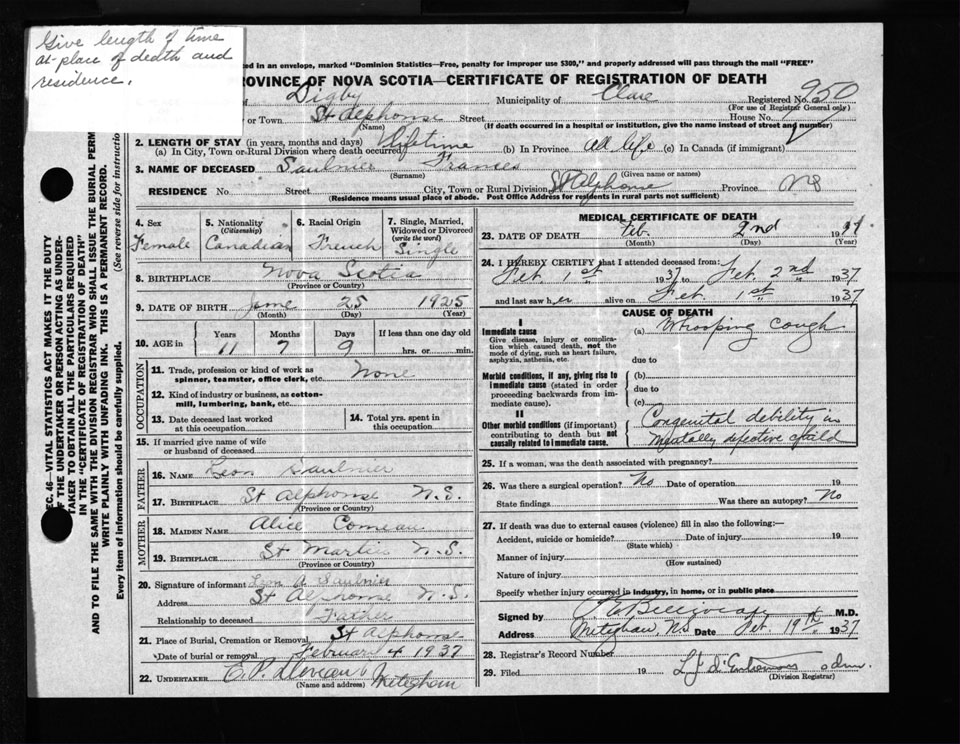 Give length of time
at place of death and
residence.
ed in an envelope, marked "Dominion Statistics—Free, penalty for improper use $300," and properly addressed will pass through the mail "FREE"
PROVINCE OF NOVA SCOTIA—CERTIFICATE OF REGISTRATION OF DEATH
of Digby Municipality of Clare Registered No. 950
(For use of Registrar General only)
or Town St Alphonse Street House No.
(Name) (If death occurred in a hospital or institution, give the name instead of street and number)
2. LENGTH OF STAY (in years, months and days)
(a) In City, Town or Rural Division where death occurred Lifetime (b) In Province All life (c) In Canada (if immigrant)
3. NAME OF DECEASED Saulnier Frances
(Surname) (Given name or names)
RESIDENCE No. Street City, Town or Rural Division St Alphonse Province NS
(Residence means usual place of abode. Post Office Address for residents in rural parts not sufficient)
4. Sex
Female
5. Nationality
(Citizenship)
Canadian
6. Racial Origin
French
7. Single, Married,
Widowed or Divorced
(write the word)
Single
8. BIRTHPLACE Nova Scotia
(Province or Country)
9. DATE OF BIRTH June 25 1925
(Month) (Day) (Year)
10. AGE in
Years Months Days If less than one day old
11 7 9 hrs. or min.
OCCUPATION
11. Trade, profession or kind of work as
spinner, teamster, office clerk, etc. None
12. Kind of industry or business, as cotton-
mill, lumbering, bank, etc.
13. Date deceased last worked
at this occupation
14. Total yrs. spent in
this occupation
15. If married give name of wife
or husband of deceased
FATHER
16. NAME Leon Saulnier
17. BIRTHPLACE St Alphonse N.S.
(Province or Country)
MOTHER
18. MAIDEN NAME Alice Comeau
19. BIRTHPLACE St Martin N.S.
(Province or Country)
20. Signature of informant Leon A Saulnier
Address St Alphonse N.S.
Relationship to deceased Father
21. Place of Burial, Cremation or Removal St Alphonse
Date of burial or removal February 4 1937
22. UNDERTAKER Meteghan
(Name and address)
MEDICAL CERTIFICATE OF DEATH
23. DATE OF DEATH Feb. 2nd 19
(Month) (Day) (Year)
24. I HEREBY CERTIFY that I attended deceased from:
Feb. 1st 1937 to Feb. 2nd 1937
and last saw her alive on Feb. 1st 1937
CAUSE OF DEATH
I
Immediate cause
Give disease, injury or complica-
tion which caused death, not the
mode of dying, such as heart failure,
asphyxia, asthenia, etc.
(a) Whooping cough
due to
Morbid conditions, if any, giving rise to
immediate cause (stated in order
proceeding backwards from im-
mediate cause).
(b)
due to
(c)
II
Other morbid conditions (if important)
contributing to death but not
causally related to immediate cause.
Congenital debility in
Mentally defective child
25. If a woman, was the death associated with pregnancy?
26. Was there a surgical operation? No Date of operation 19
State findings Was there an autopsy? No
27. If death was due to external causes (violence) fill in also the following:—
Accident, suicide or homicide? Date of injury 19
(State which)
Manner of injury
(How sustained)
Nature of injury
Specify whether injury occurred in industry, in home, or in public place
Signed by M.D.
Address Meteghan, NS Date Feb. 19th 1937
28. Registrar's Record Number
29. Filed 19
(Division Registrar)
SEC. 46—VITAL STATISTICS ACT MAKES IT THE DUTY
OF THE UNDERTAKER OR PERSON ACTING AS UNDER-
TAKER TO OBTAIN ALL THE PARTICULARS REQUIRED
IN THE "CERTIFICATE OF REGISTRATION OF DEATH"
AND TO FILE THE SAME WITH THE DIVISION REGISTRAR WHO SHALL ISSUE THE BURIAL PERM
WRITE PLAINLY WITH UNFADING INK. THIS IS A PERMANENT RECORD.
Every item of information should be carefully supplied. (See reverse side for instructio